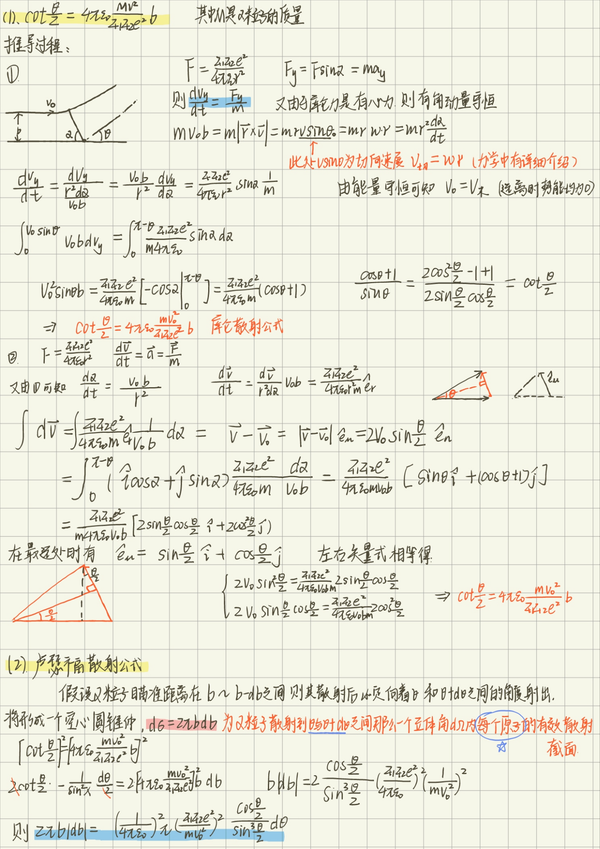 (1). cot θ/2 = 4πε₀ mv²/(Z₁Z₂e²) b 其中M是α粒子的质量
推导过程:
① F = Z₁Z₂e²/(4πε₀r²) Fy = F sinα = may
则 dvy/dt = Fy/m 又由于库仑力是有心力 则有角动量守恒
v₀ b α θ
mv₀b = m|r⃗×v⃗| = mrv sinθ₀ = mr wr = mr² dα/dt
此处vsinθ为切向速度 = wr (力学中有详细介绍)
dvy/dt = dvy/(r²dα/(v₀b)) = v₀b/r² dvy/dα = Z₁Z₂e²/(4πε₀r²) sinα 1/m
由能量守恒可知 V₀ = V末 (远离时势能均为0)
∫₀^(v₀sinθ) v₀b dvy = ∫₀^(π-θ) Z₁Z₂e²/(m4πε₀) sinα dα
V₀² sinθ b = Z₁Z₂e²/(4πε₀m) [-cosα|₀^(π-θ)] = Z₁Z₂e²/(4πε₀m) (cosθ+1)
(cosθ+1)/sinθ = (2cos²θ/2 -1+1)/(2sinθ/2 cosθ/2) = cot θ/2
⇒ cot θ/2 = 4πε₀ mv₀²/(Z₁Z₂e²) b 库仑散射公式
② F = Z₁Z₂e²/(4πε₀r²) dv⃗/dt = a⃗ = F⃗/m
又由①可知 dα/dt = v₀b/r² dv⃗/dt = dv⃗/(r²dα) v₀b = Z₁Z₂e²/(4πε₀r²m) êr
θ êu
∫dv⃗ = ∫ Z₁Z₂e²/(4πε₀m) êr 1/(v₀b) dα = v⃗ - v⃗₀ = |v⃗-v⃗₀| êu = 2V₀ sin θ/2 êu
= ∫₀^(π-θ) (î cosα + ĵ sinα) Z₁Z₂e²/(4πε₀m) dα/(v₀b) = Z₁Z₂e²/(4πε₀mv₀b) [sinθ î + (cosθ+1) ĵ]
= Z₁Z₂e²/(m4πε₀v₀b) [2sinθ/2 cosθ/2 î + 2cos²θ/2 ĵ]
在最远处时有 êu = sin θ/2 î + cos θ/2 ĵ 左右矢量式相等得
θ/2 θ/2
2V₀ sin²θ/2 = Z₁Z₂e²/(4πε₀v₀bm) 2sinθ/2 cosθ/2
2V₀ sinθ/2 cosθ/2 = Z₁Z₂e²/(4πε₀v₀bm) 2cos²θ/2
⇒ cot θ/2 = 4πε₀ mv₀²/(Z₁Z₂e²) b
(2) 卢瑟福散射公式
假设α粒子瞄准距离在 b ~ b-db之间 则其散射后必向着θ和θ+dθ之间的角度射出.
将形成一个空心圆锥体, dσ = 2πbdb 为α粒子散射到θ与θ+dθ之间那么一个立体角dΩ内每个原子的有效散射
截面
[cot θ/2]² = [4πε₀ mv₀²/(Z₁Z₂e²) b]²
2cot θ/2 · - 1/sin² dθ/2 = 2[4πε₀ mv₀²/(Z₁Z₂e²)]² b db
b|db| = 2 cosθ/2 / sin³θ/2 (Z₁Z₂e²/(4πε₀))² (1/(mv₀²))²
则 2πb|db| = (1/(4πε₀))² π (Z₁Z₂e²/(mv₀²))² cosθ/2 / sin³θ/2 dθ